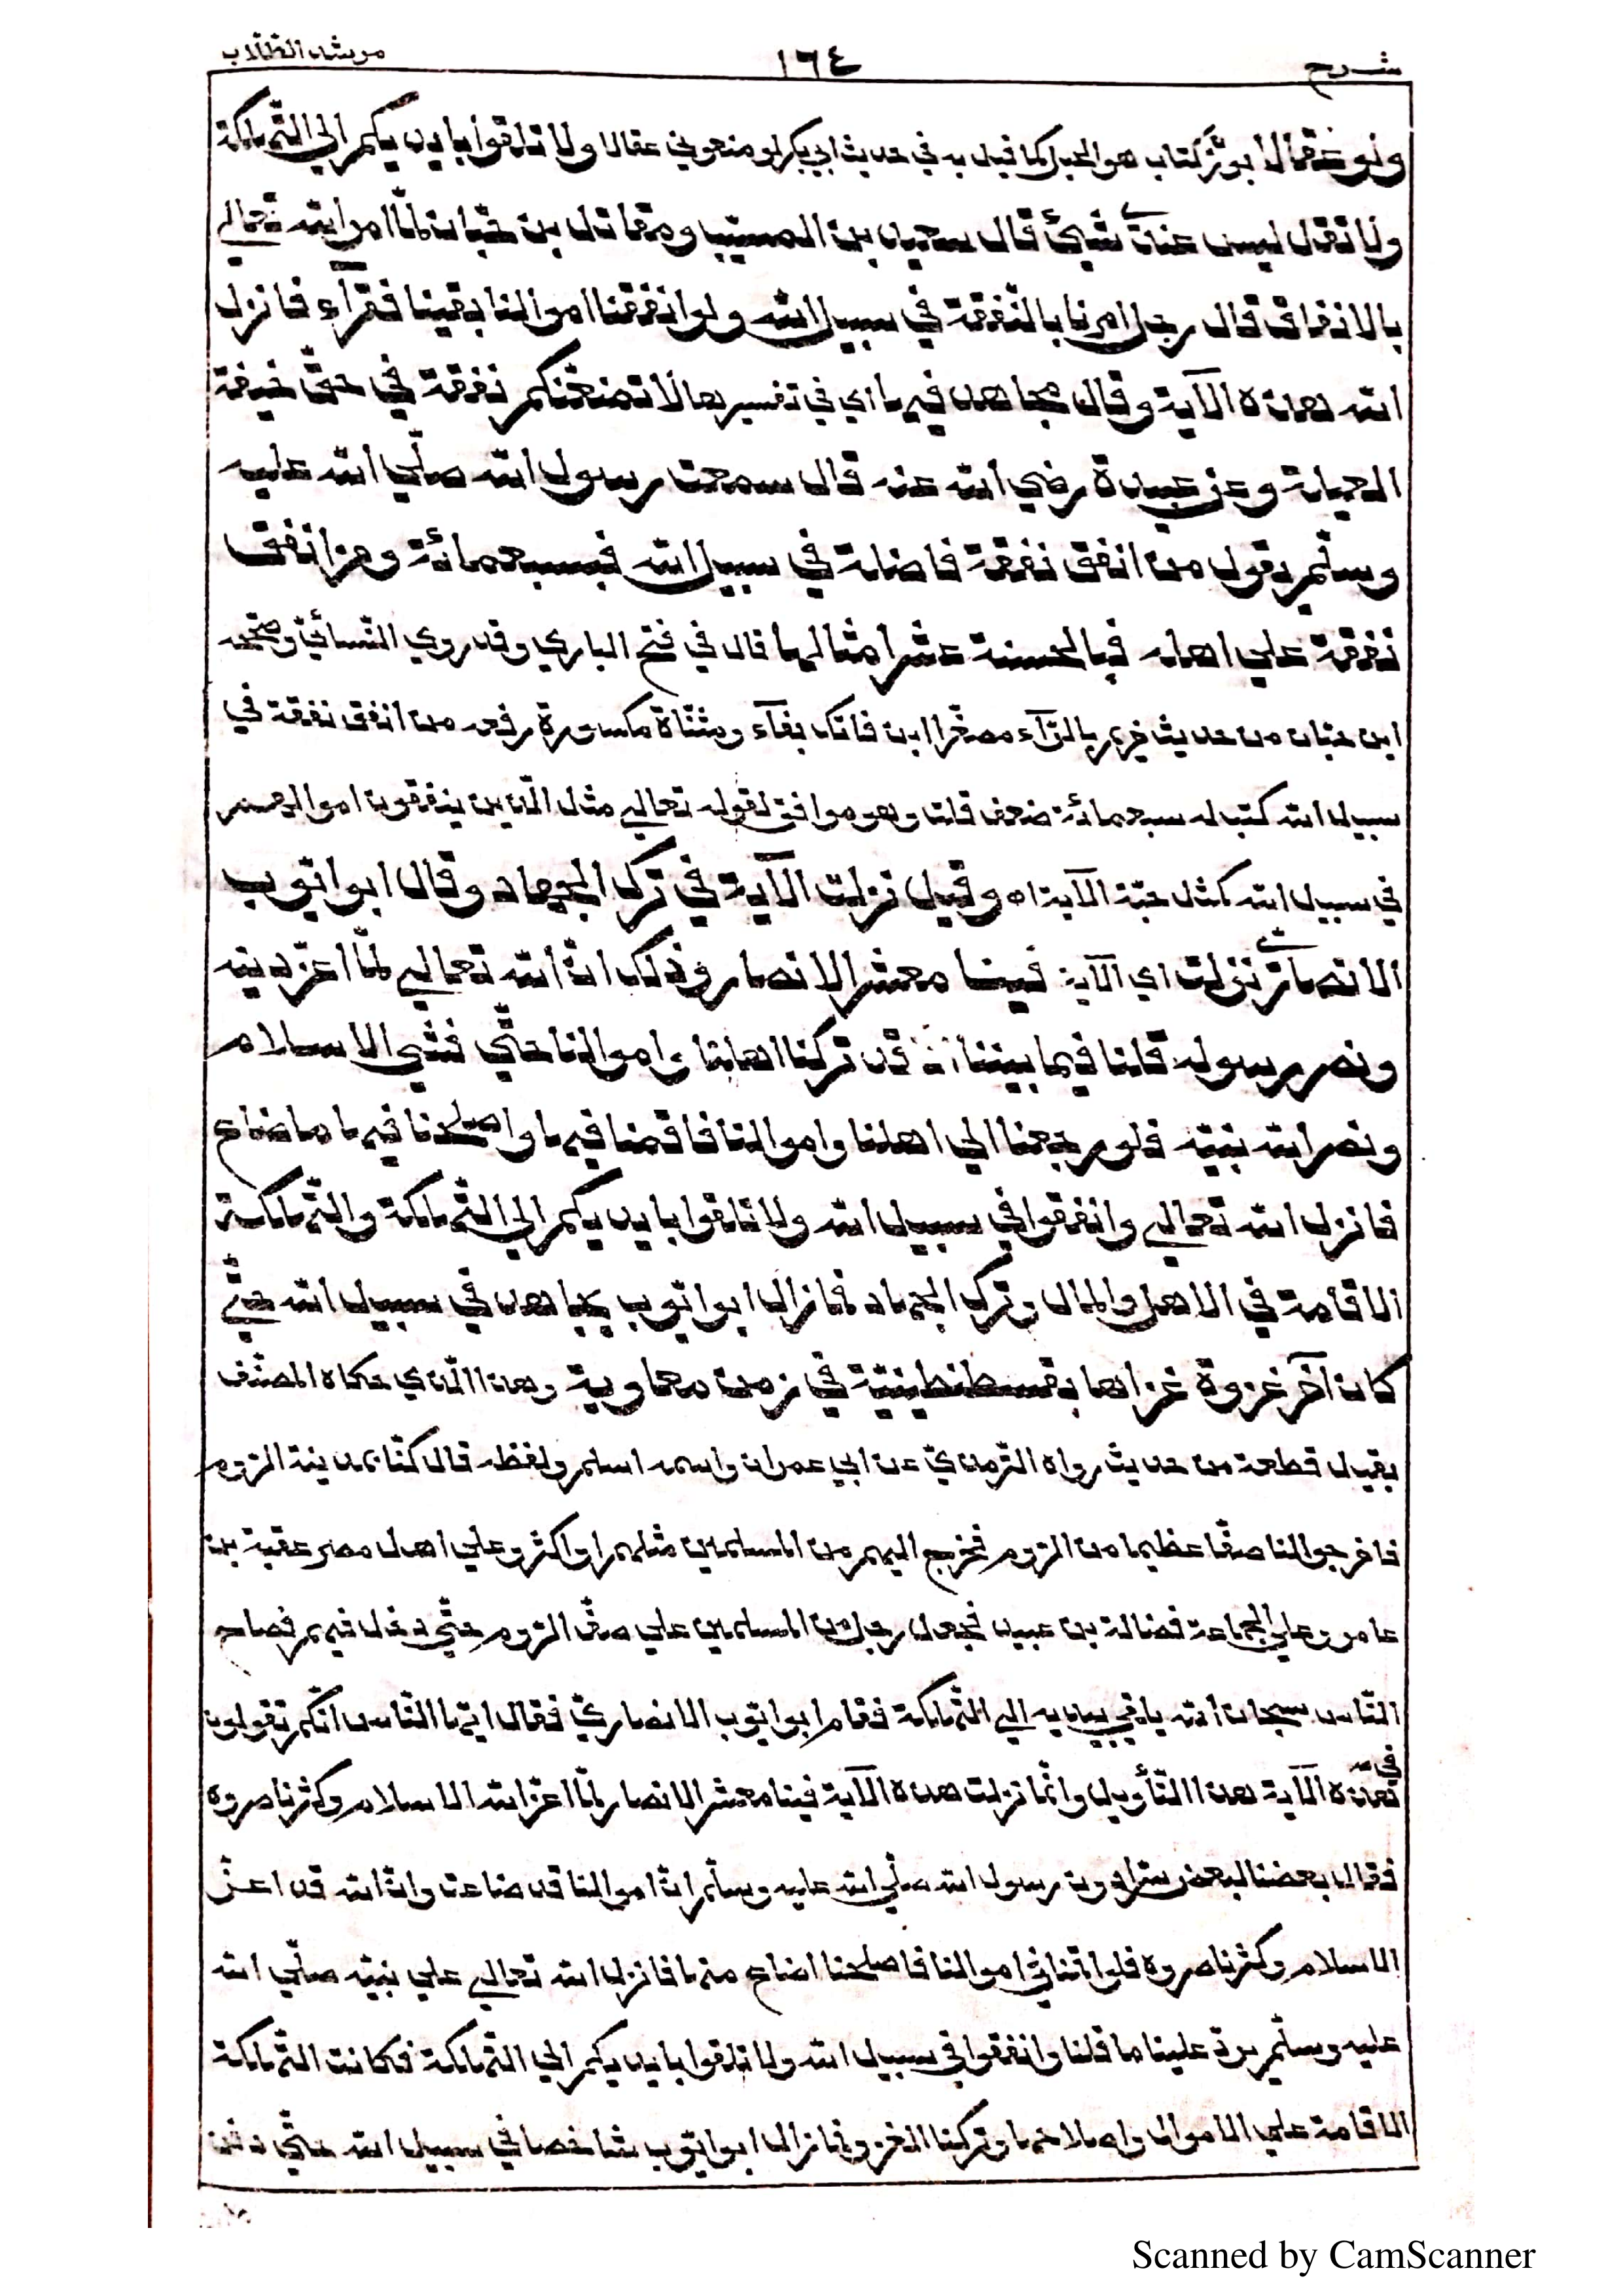 شرح ١٦٤ مرشد الطلاب
ولو عقالا بوزن كتاب هو الحبل كما قيل به في حديث ابي بكر لو منعوني عقالا ولا تلقوا بايديكم الي التهلكة
ولا تقل ليس عندي شيئ قال سعيد بن المسيب ومقاتل بن حبان لما امر الله تعالي
بالانفاق قال رجل امرنا بالنفقة في سبيل الله ولو انفقنا اموالنا بقينا فقرآء فانزل
الله هذه الآية وقال مجاهد فيها اي في تفسيرها لا تمنعنكم نفقة في حق خيفة
العيلة وعن عبيدة رضي الله عنه قال سمعت رسول الله صلي الله عليه
وسلم يقول من انفق نفقة فاضلة في سبيل الله فبسبعمائة ومن انفق
نفقة علي اهله فبالحسنة عشر امثالها قال في فتح الباري وقد روي النسائي وصححه
ابن حبان من حديث خريم بالرآء مصغرا ابن فاتك بفآء ومثناة مكسورة رفعه من انفق نفقة في
سبيل الله كتب له سبعمائة ضعف قلت وهو موافق لقوله تعالي مثل الذين ينفقون اموالهم
في سبيل الله كمثل حبة الآية اه وقيل نزلت الآية في ترك الجهاد وقال ابو ايوب
الانصاري نزلت اي الآية فينا معشر الانصار وذلك ان الله تعالي لما اعز دينه
ونصر رسوله قلنا فيما بيننا انا قد تركنا اهلنا واموالنا حتي فشي الاسلام
ونصر الله نبيه فلو رجعنا الي اهلنا واموالنا فاقمنا فيها واصلحنا فيها ما ضاع
فانزل الله تعالي وانفقوا في سبيل الله ولا تلقوا بايديكم الي التهلكة والتهلكة
الاقامة في الاهل والمال وترك الجهاد فما زال ابو ايوب يجاهد في سبيل الله حتي
كان آخر غزوة غزاها بقسطنطينية في زمن معاوية وهذا الذي حكاه المصنف
بقيل قطعة من حديث رواه الترمذي عن ابي عمران واسمه اسلم ولفظه قال كنا بمدينة الروم
فاخرجوا لنا صفا عظيما من الروم فخرج اليهم من المسلمين مثلهم او اكثر وعلي اهل مصر عقبة بن
عامر وعلي الجماعة فضالة بن عبيد فحمل رجل من المسلمين علي صف الروم حتي دخل فيهم فصاح
الناس سبحان الله يلقي بيديه الي التهلكة فقام ابو ايوب الانصاري فقال ايها الناس انكم تقولون
في هذه الآية هذا التأويل وانما نزلت هذه الآية فينا معشر الانصار لما اعز الله الاسلام وكثر ناصروه
فقال بعضنا لبعض سرا دون رسول الله صلي الله عليه وسلم ان اموالنا قد ضاعت وان الله قد اعز
الاسلام وكثر ناصروه فلو اقمنا في اموالنا فاصلحنا ما ضاع منها فانزل الله تعالي علي نبيه صلي الله
عليه وسلم يرد علينا ما قلنا وانفقوا في سبيل الله ولا تلقوا بايديكم الي التهلكة فكانت التهلكة
الاقامة علي الاموال واصلاحها وتركنا الغزو فما زال ابو ايوب شاخصا في سبيل الله حتي دفن
Scanned by CamScanner